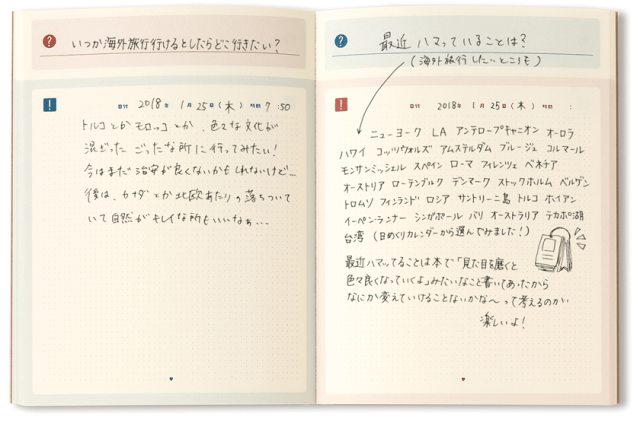 いつか海外旅行行けるとしたらどこ行きたい?
日付 2018年 1月25日(木) 時間 7:50
トルコとかモロッコとか、色々な文化が
混ざった ごったな所に行ってみたい!
今はまだ治安が良くないかもしれないけど…
後は、カナダとか北欧あたりの落ちついて
いて自然がキレイな所もいいなぁ…
最近ハマっていることは?
(海外旅行したいところも)
日付 2018年 1月25日(木) 時間 :
ニューヨーク LA アンテロープキャニオン オーロラ
ハワイ コッツウォルズ アムステルダム ブルージュ コルマール
モンサンミッシェル スペイン ローマ フィレンツェ ベネチア
オーストリア ローテンブルク デンマーク ストックホルム ベルゲン
トロムソ フィンランド ロシア サントリーニ島 トルコ ホイアン
イーペン・ランナー シンガポール バリ オーストラリア テカポ湖
台湾 (日めくりカレンダーから選んでみました!)
最近ハマってることは本で「見た目を磨くと
色々良くなっていくよ」みたいなこと書いてあったから
なにか変えていけることないかな〜って考えるのが
楽しいよ!